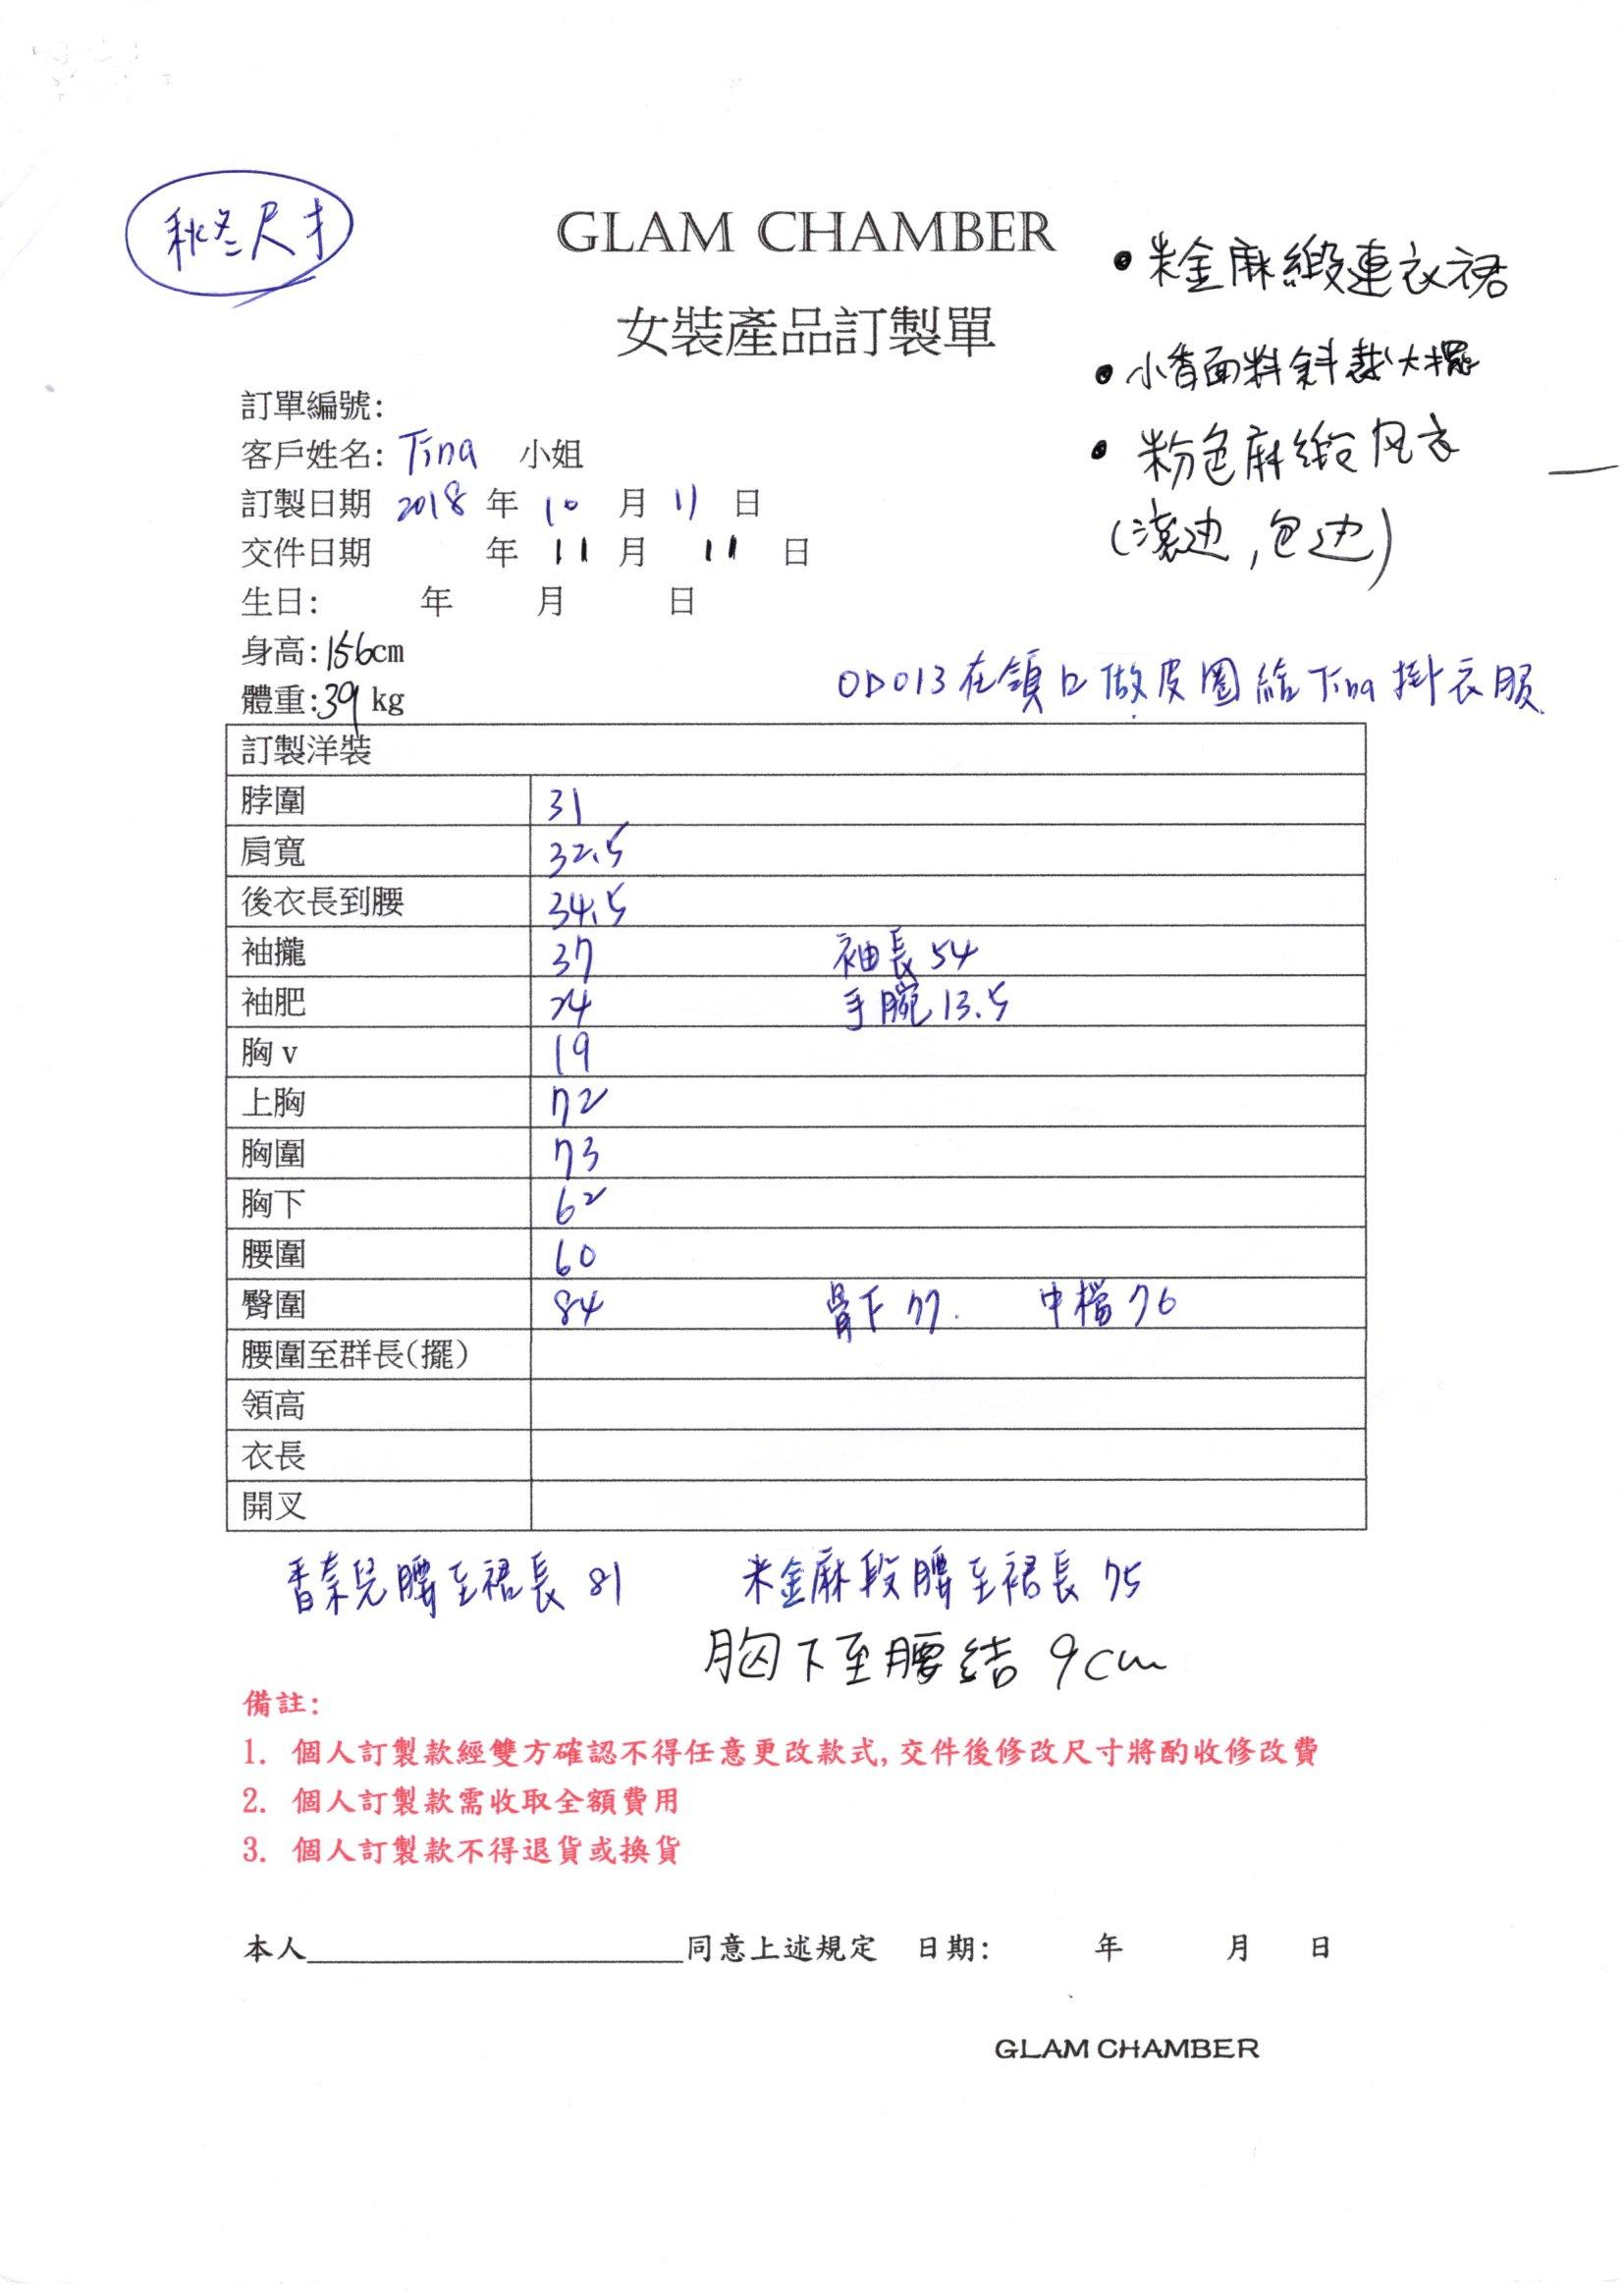 秋冬尺寸
GLAM CHAMBER
女裝產品訂製單
• 米金麻緞連衣裙
• 小香面料斜裁大擺
• 粉色麻緞风衣
(滾边,包边)
訂單編號:
客戶姓名: Tina 小姐
訂製日期 2018 年 10 月 11 日
交件日期 年 11 月 11 日
生日: 年 月 日
身高:156cm
體重:39 kg
OD013在領口做皮圈給Tina掛衣服
訂製洋裝
脖圍 31
肩寬 32.5
後衣長到腰 34.5
袖攏 37 袖長 54
袖肥 24 手腕 13.5
胸v 19
上胸 72
胸圍 73
胸下 62
腰圍 60
臀圍 84 骨下 77. 中檔 76
腰圍至群長(擺)
領高
衣長
開叉
香奈兒腰至裙長 81 米金麻段腰至裙長 75
胸下至腰结 9cm
備註:
1. 個人訂製款經雙方確認不得任意更改款式,交件後修改尺寸將酌收修改費
2. 個人訂製款需收取全額費用
3. 個人訂製款不得退貨或換貨
本人____________________同意上述規定 日期: 年 月 日
GLAM CHAMBER